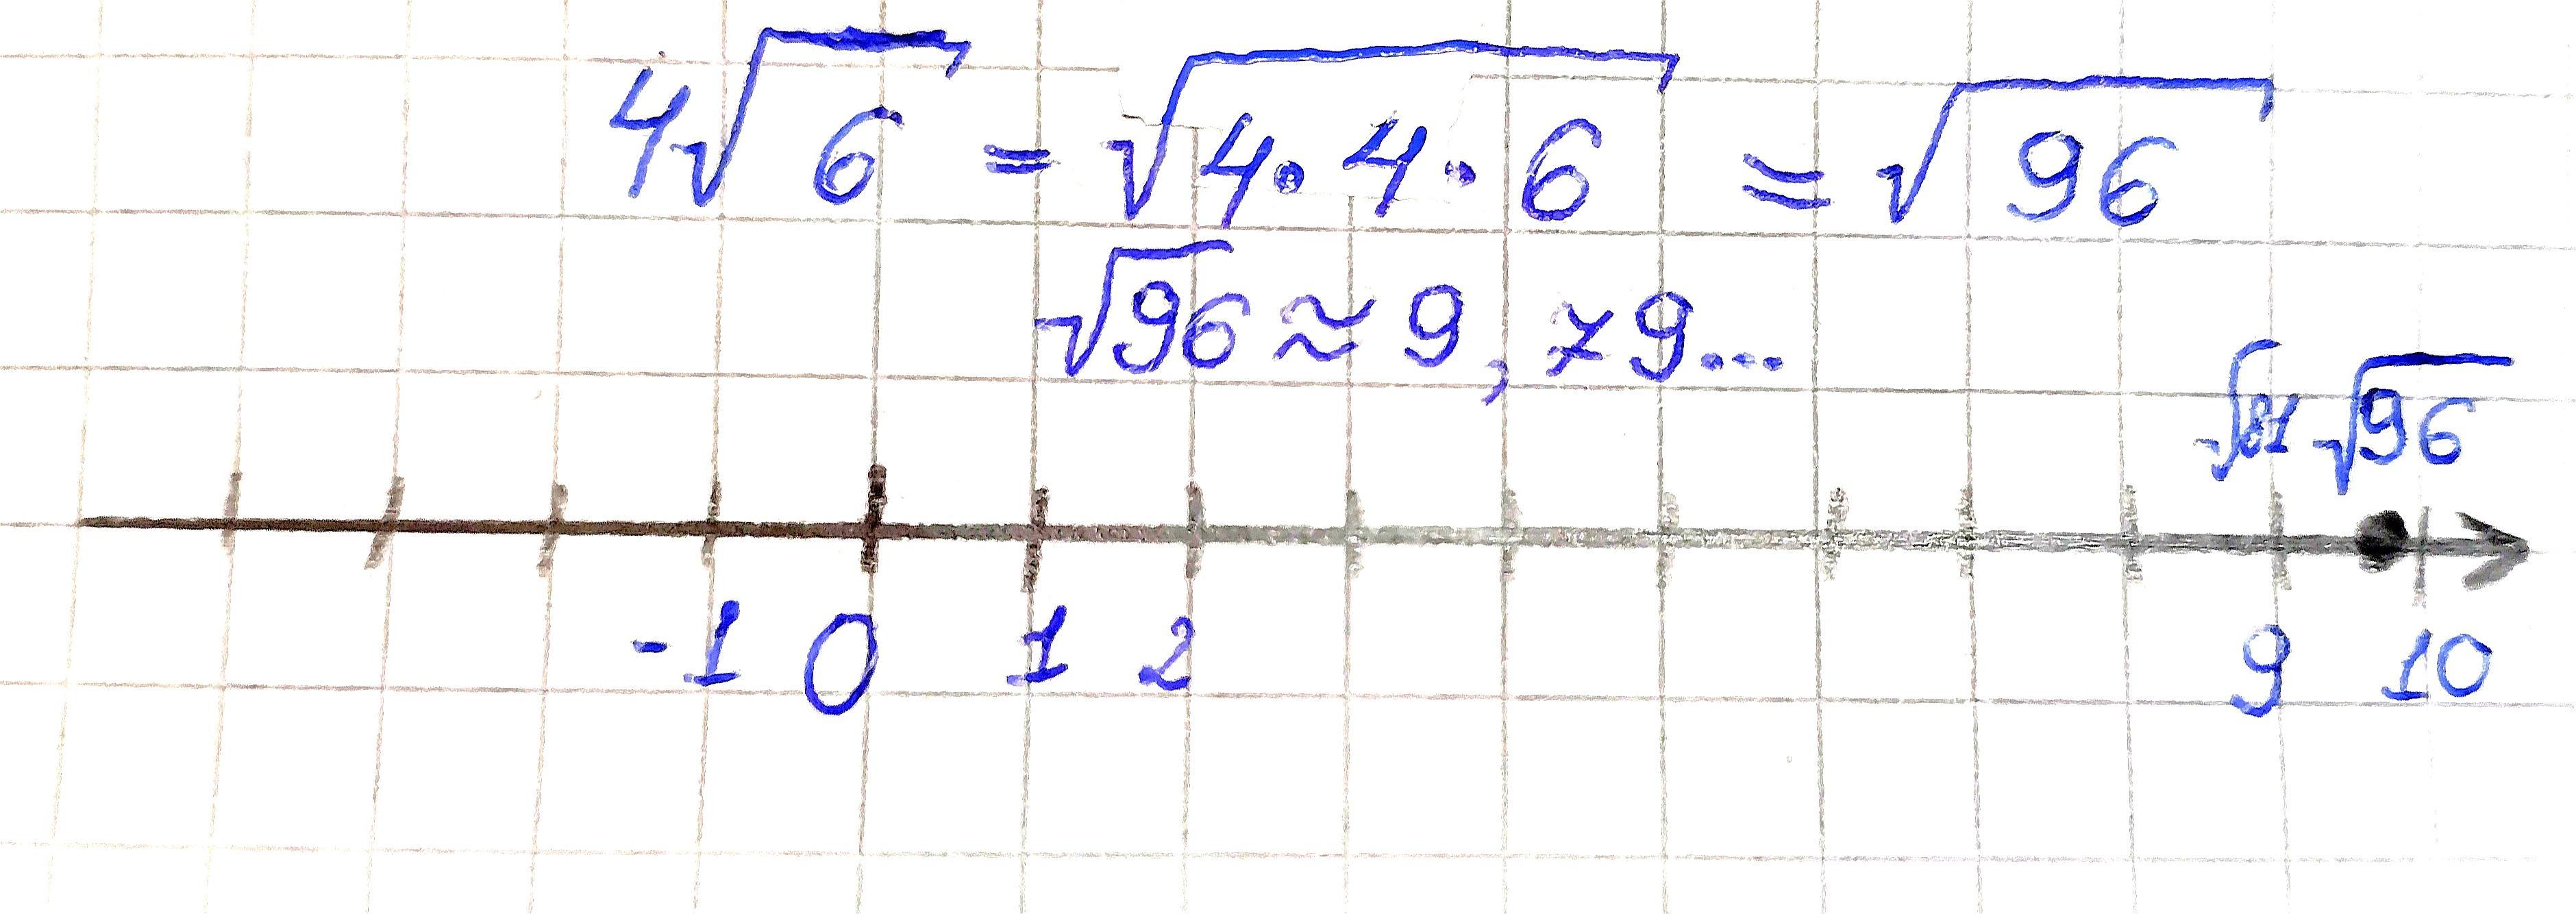 4√6 = √4·4·6 = √96
√96 ≈ 9,79...
√81 √96
-1 0 1 2 9 10